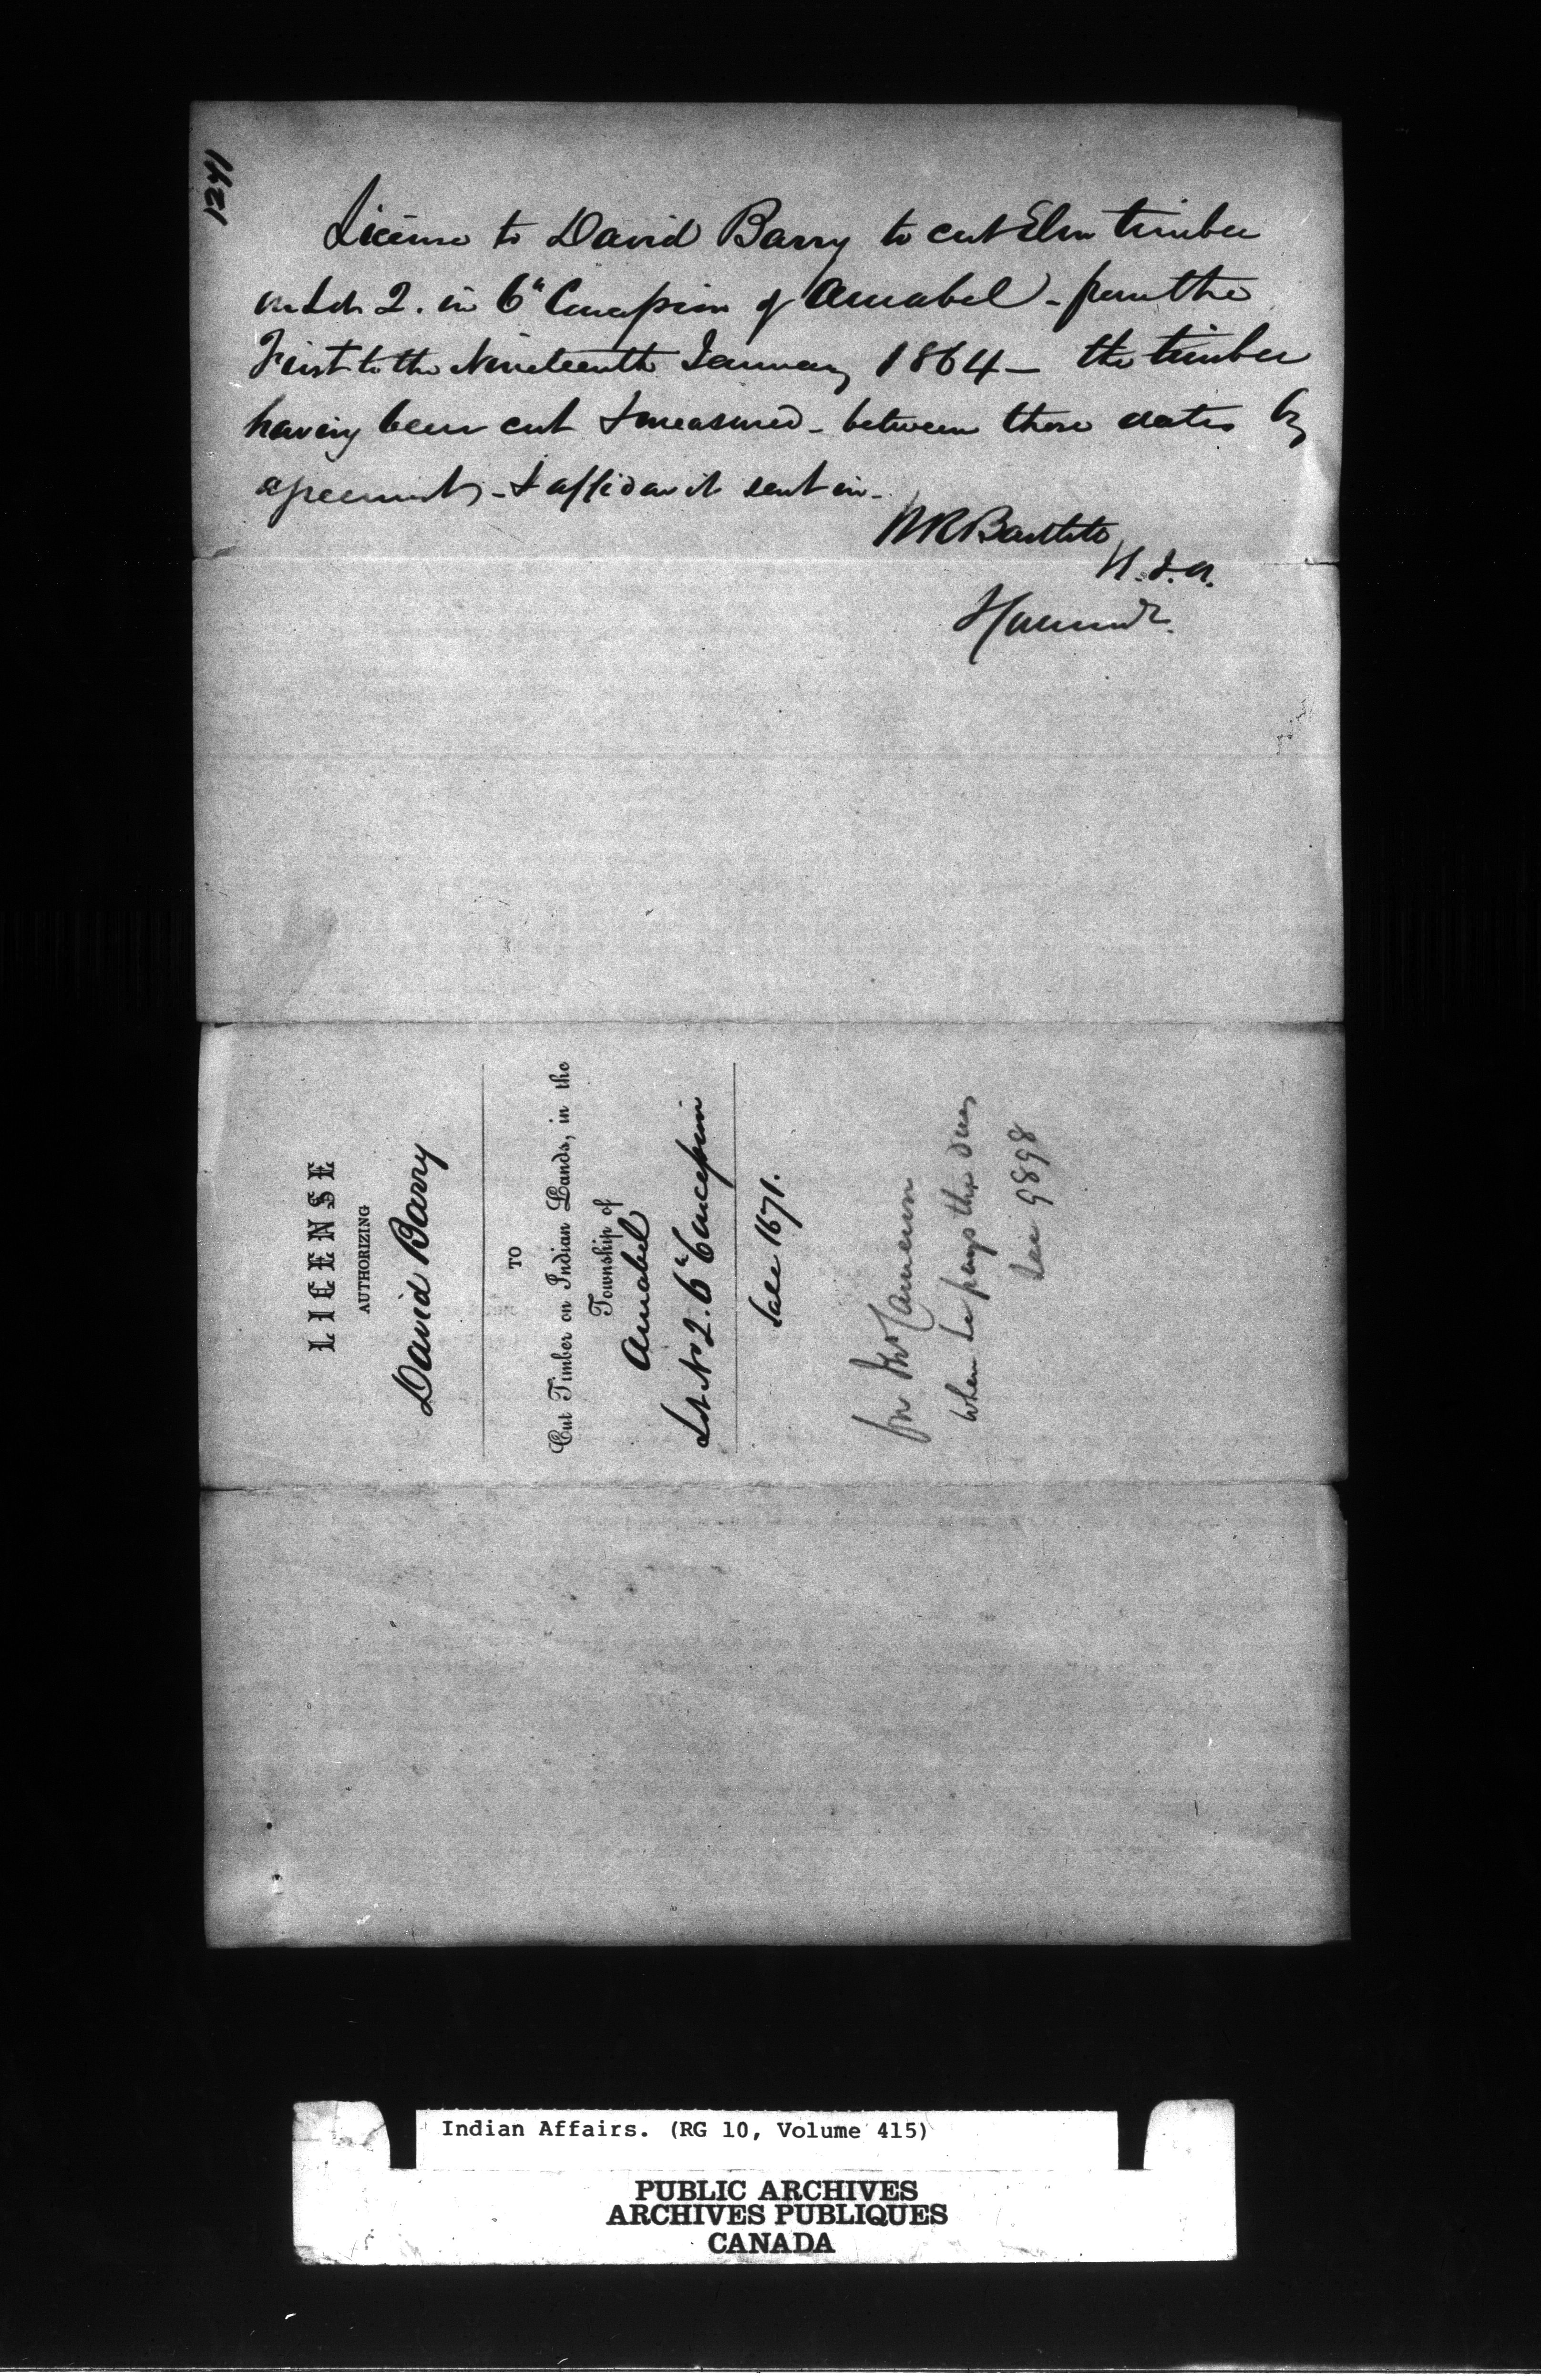 1241
License to David Barry to cut Elm timber
on Lot 2. in 6" Concession of Amabel - from the
First to the Nineteenth January 1864 - the timber
having been cut & measured - between those dates by
agreement, - & affidavit sent in -
W R Bartlett
LICENSE
AUTHORIZING
David Barry
TO
Cut Timber on Indian Lands, in the
Township of
Amabel
Lot No 2. 6" Concession
Sale 1671.
for Mr Cameron
When he pays the dues
See 9898
Indian Affairs. (RG 10, Volume 415)
PUBLIC ARCHIVES
ARCHIVES PUBLIQUES
CANADA